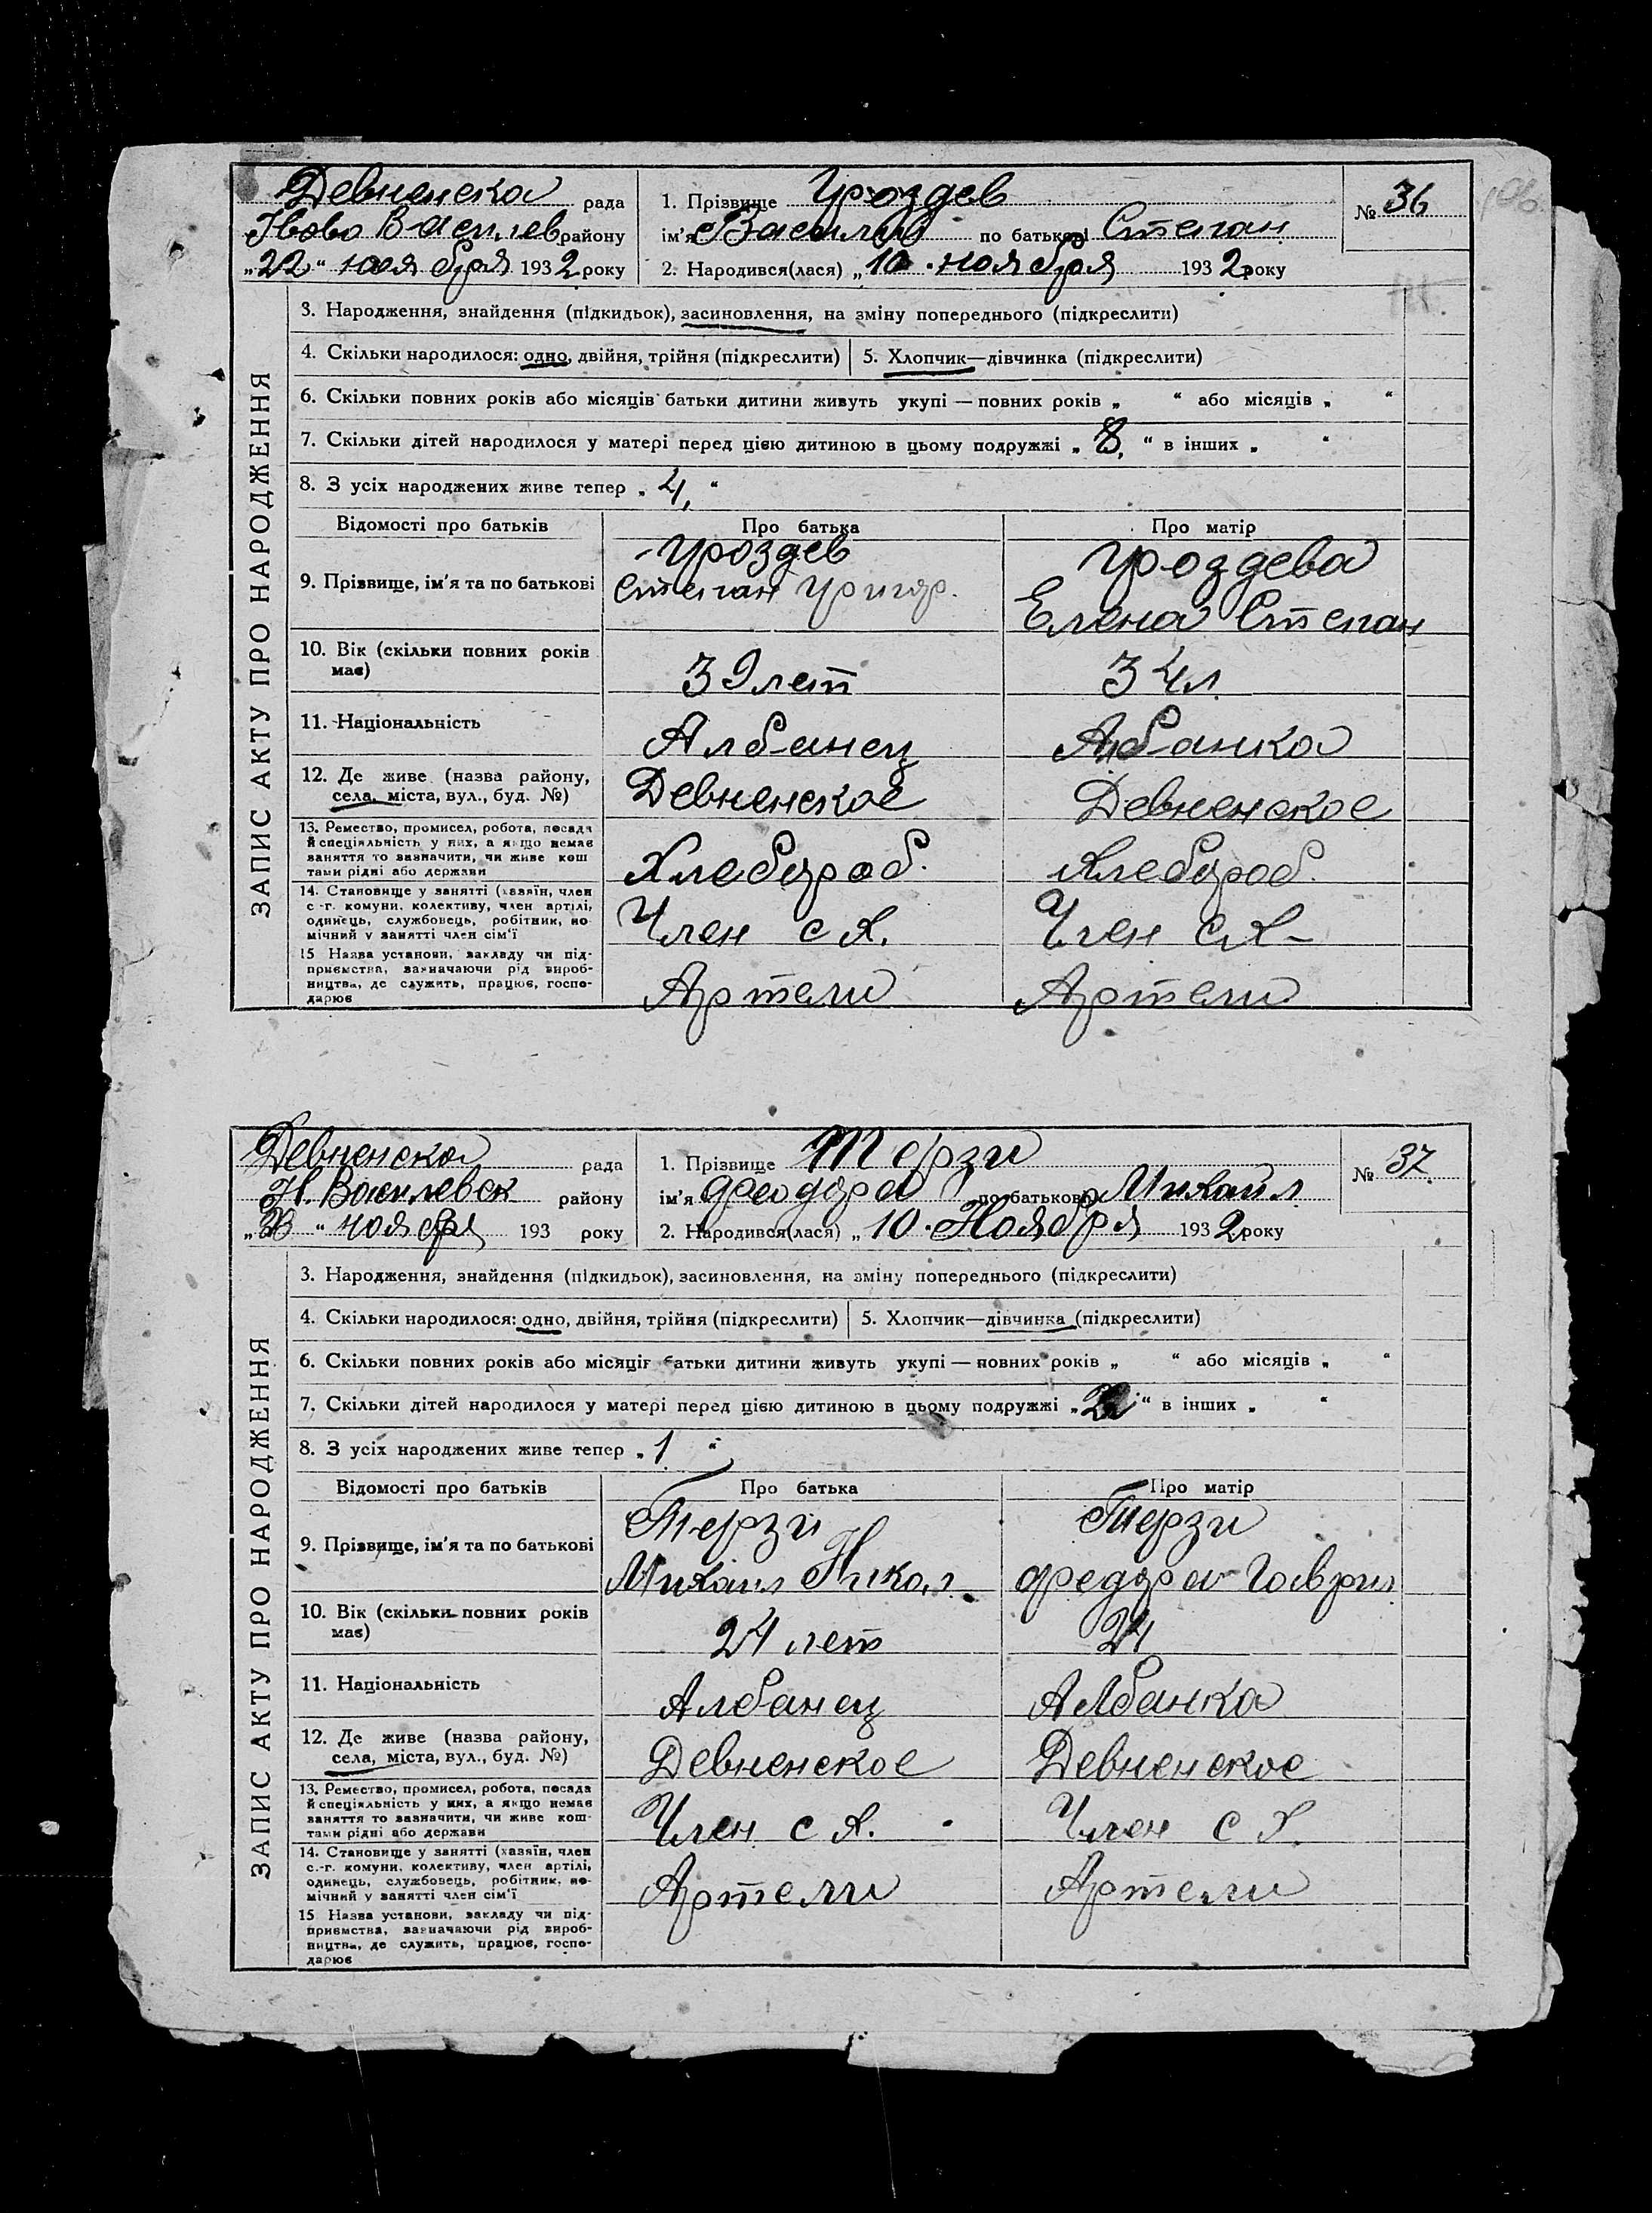 Девненска рада
Ново Василев району
„22“ ноября 1932 року
1. Прізвище Гроздев
ім'я Василий по батькові Степан
2. Народився(лася) „10 ноября 1932 року
№ 36
106
ЗАПИС АКТУ ПРО НАРОДЖЕННЯ
3. Народження, знайдення (підкидьок), засиновлення, на зміну попереднього (підкреслити)
4. Скільки народилося: одно, двійня, трійня (підкреслити) 5. Хлопчик—дівчинка (підкреслити)
6. Скільки повних років або місяців батьки дитини живуть укупі — повних років „ “ або місяців „ “
7. Скільки дітей народилося у матері перед цією дитиною в цьому подружжі „8“ в інших „ “
8. З усіх народжених живе тепер „4“
Відомості про батьків Про батька Про матір
9. Прізвище, ім'я та по батькові Гроздев Степан Григор. Гроздева Елена Степан
10. Вік (скільки повних років має) 39 лет 34 л
11. Національність Албанец Албанка
12. Де живе (назва району, села, міста, вул., буд. №) Девненское Девненское
13. Ремество, промисел, робота, посада й спеціяльність у них, а якщо немає заняття то зазначити, чи живе коштами рідні або держави Хлебороб. Хлебороб.
14. Становище у занятті (хазяїн, член с.-г. комуни, колективу, член артілі, одинець, службовець, робітник, помічний у занятті член сім'ї Член с Х. Член с Х-
15 Назва установи, закладу чи підприємства, зазначаючи рід виробництва, де служить, працює, господарює Артели Артели
Девненска рада
Н. Василевск району
ноября 193 року
1. Прізвище Терзи
ім'я Феодора по батькові Михаил
2. Народився(лася) „10 Ноября 1932 року
№ 37
ЗАПИС АКТУ ПРО НАРОДЖЕННЯ
3. Народження, знайдення (підкидьок), засиновлення, на зміну попереднього (підкреслити)
4. Скільки народилося: одно, двійня, трійня (підкреслити) 5. Хлопчик—дівчинка (підкреслити)
6. Скільки повних років або місяців батьки дитини живуть укупі — повних років „ “ або місяців „ “
7. Скільки дітей народилося у матері перед цією дитиною в цьому подружжі „2“ в інших „ “
8. З усіх народжених живе тепер „1“
Відомості про батьків Про батька Про матір
9. Прізвище, ім'я та по батькові Терзи Михаил Никол. Терзи Федора Гаврил
10. Вік (скільки повних років має) 24 лет 24
11. Національність Албанец Албанка
12. Де живе (назва району, села, міста, вул., буд. №) Девненское Девненское
13. Ремество, промисел, робота, посада й спеціяльність у них, а якщо немає заняття то зазначити, чи живе коштами рідні або держави Член с Х. Член с Х.
14. Становище у занятті (хазяїн, член с.-г. комуни, колективу, член артілі, одинець, службовець, робітник, помічний у занятті член сім'ї Артели Артели
15 Назва установи, закладу чи підприємства, зазначаючи рід виробництва, де служить, працює, господарює